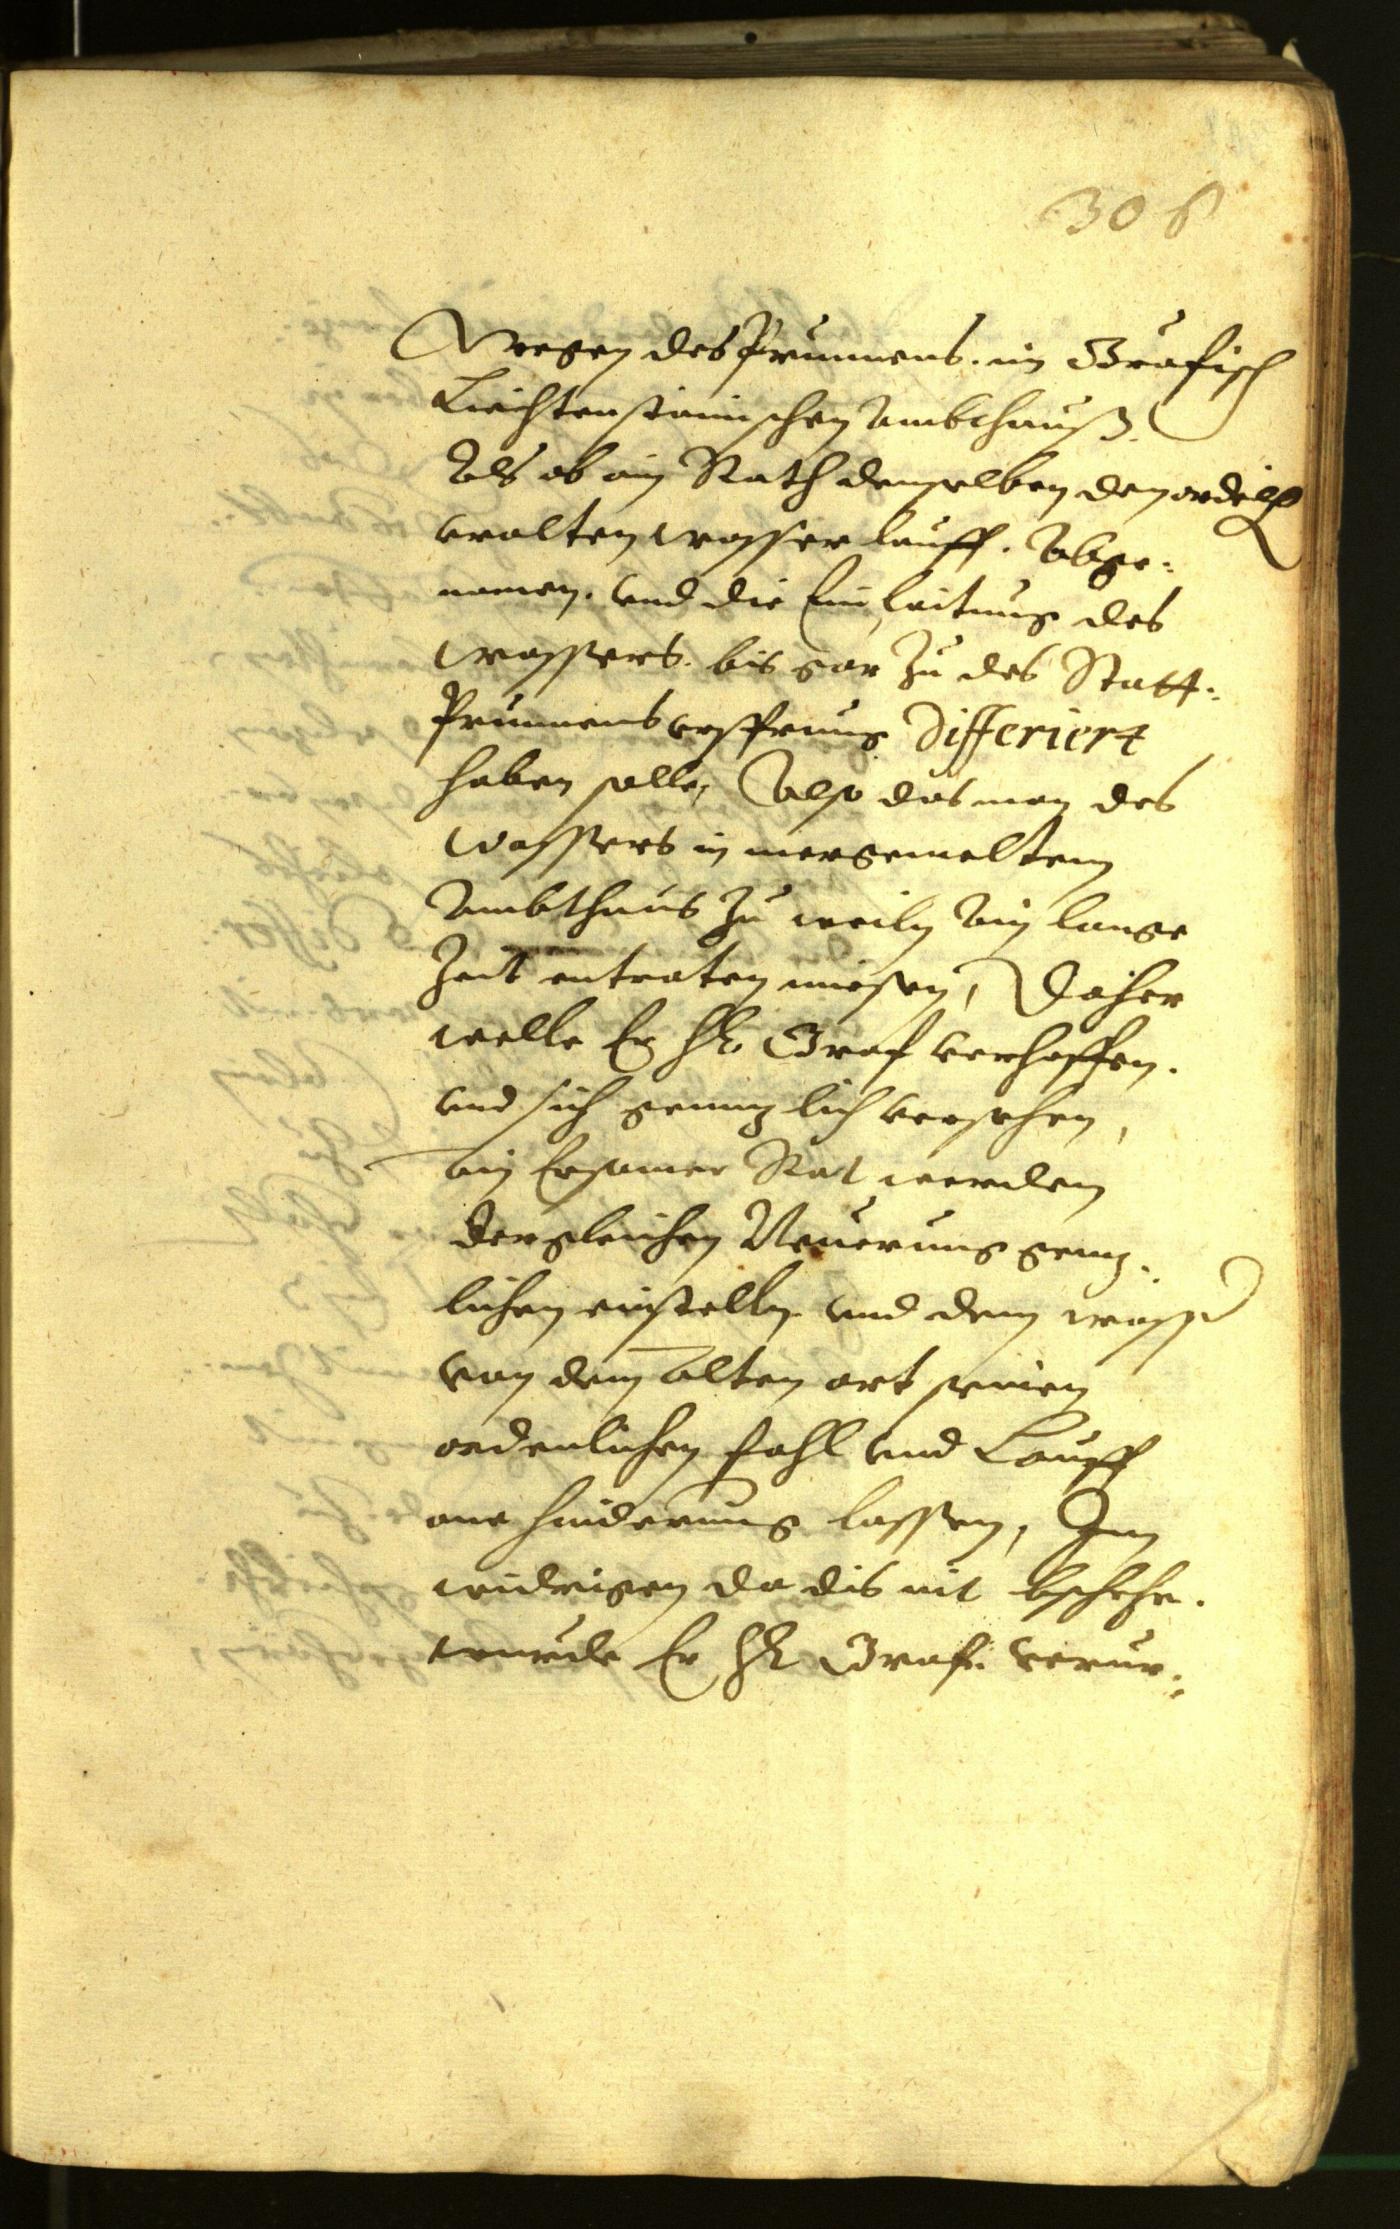 306
Wegen des Prunnens. im Gräfisch
Liechtenstainischen Ambthauß.
Als ob ain Rath denselben den ordelich
uralten wasser lauff. Abge:
nomen. und die Einlaitung des
wassers. bis gar zu des Statt:
Prunnens ursprung Differiert
haben solle, Also das man des
wassers in mergemeltem
Ambthaus zu weiln ain lange
Zeit entraten miessen, Daher
welle Er Hr Graf verhoffen.
und sich genntzlich versehen,
ain Ersamer Rat werden
dergleichen Neuerung gentz:
lichen einstelln und dem wasser
von dem alten ort seinen
ordenlichen fahl und Lauff
one hinderung lassen, Im
widrigen da dis nit beschehe.
wurde Er Hr Graf. verur: